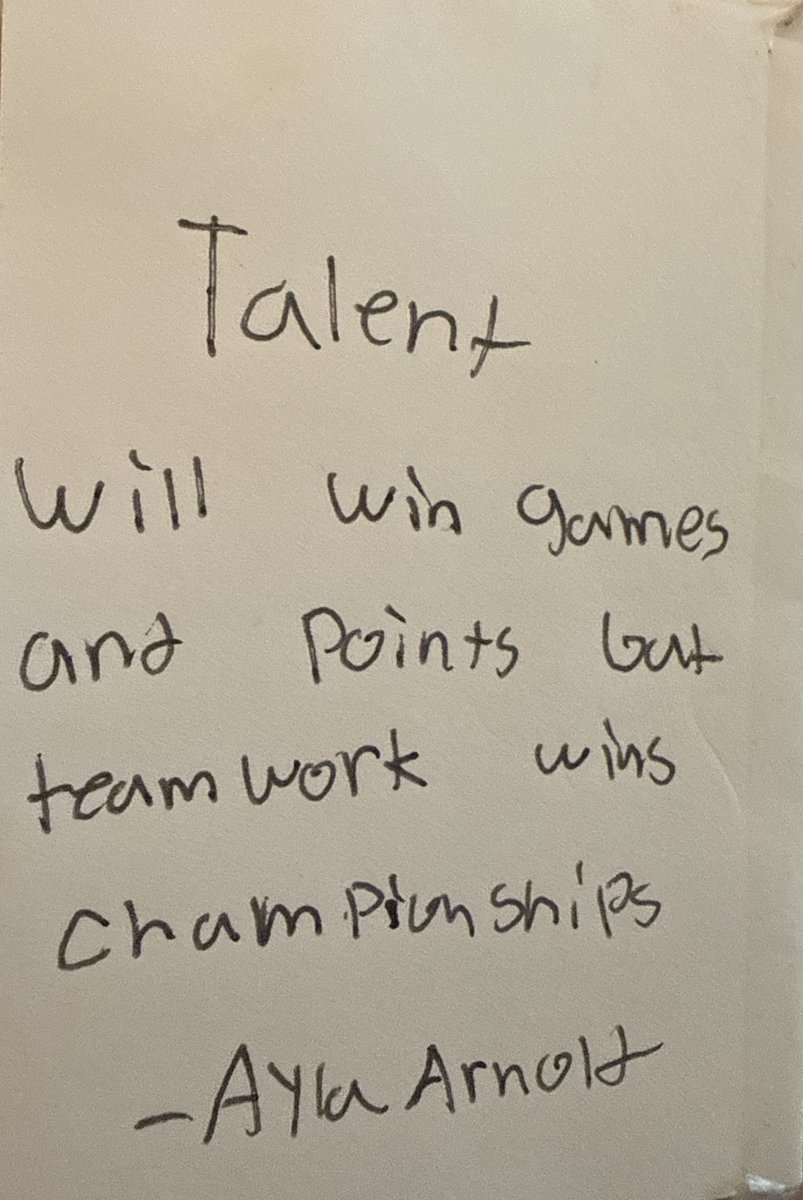 Talent
will win games
and points but
teamwork wins
championships
- Ayla Arnold